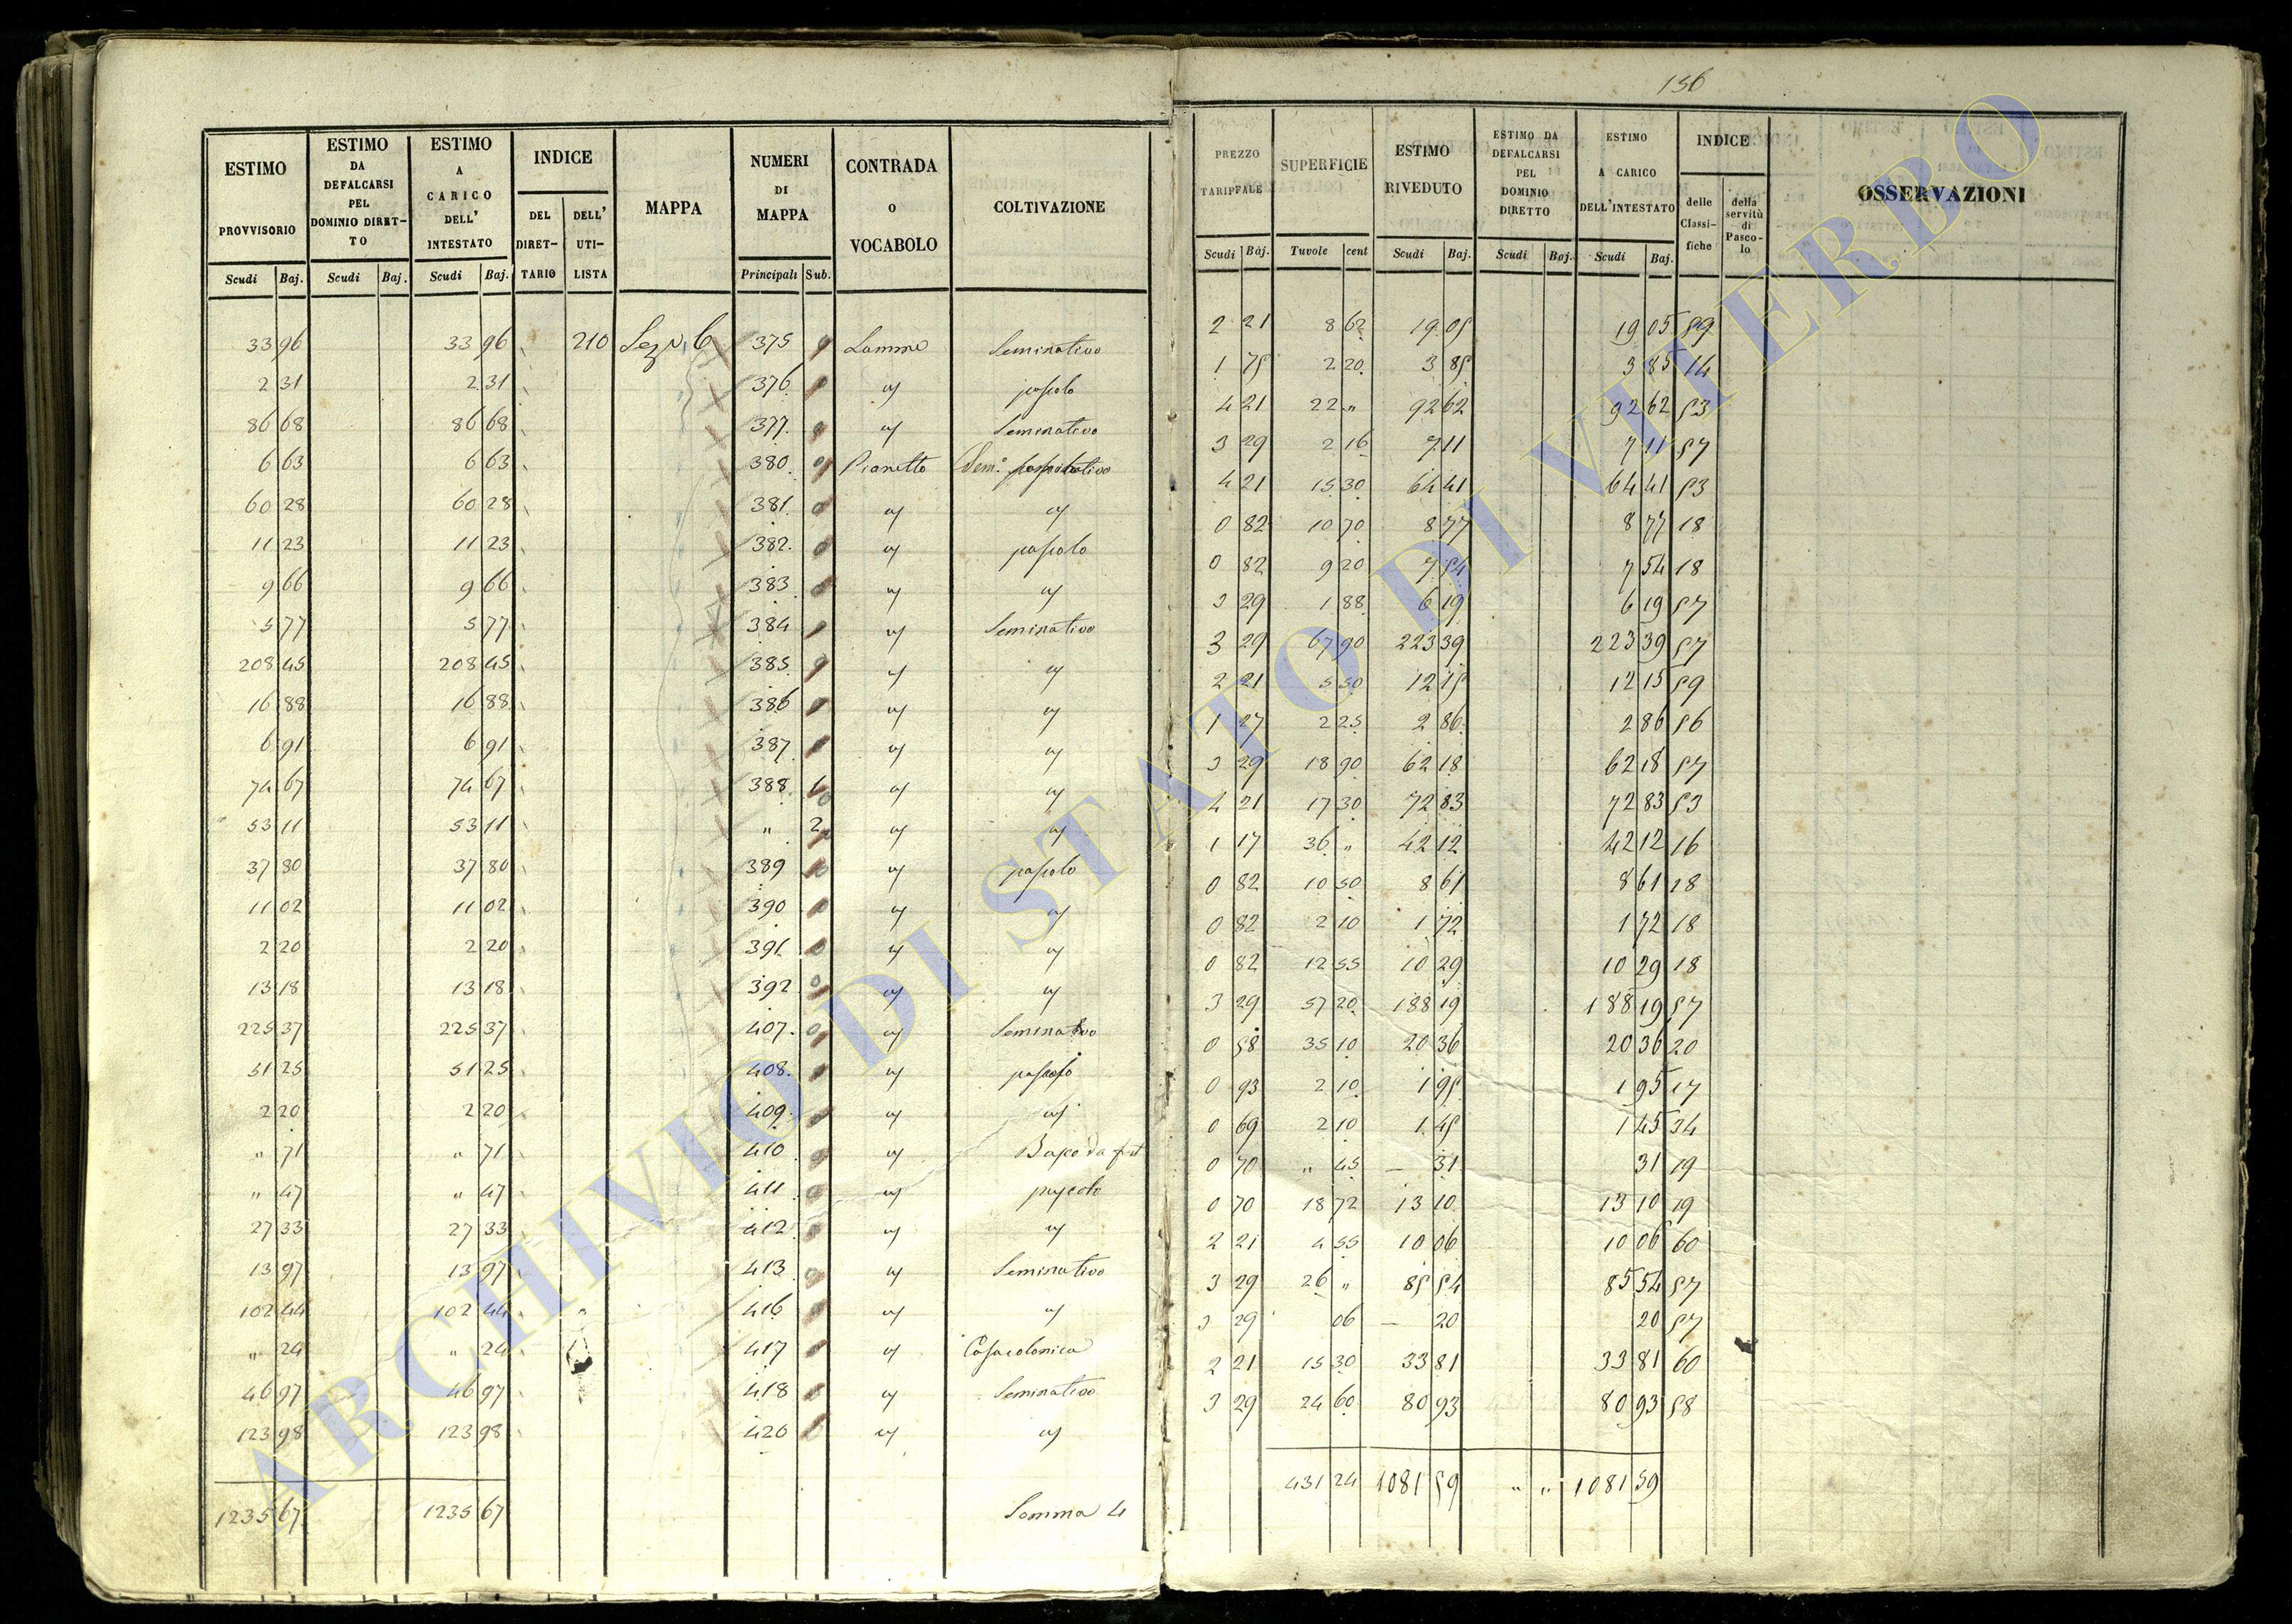 156
ESTIMO PROVVISORIO | ESTIMO DA DEFALCARSI PEL DOMINIO DIRET- TO | ESTIMO A CARICO DELL' INTESTATO | INDICE | MAPPA | NUMERI DI MAPPA | CONTRADA O VOCABOLO | COLTIVAZIONE
DEL DIRET- TARIO | DELL' UTI- LISTA
Scudi | Baj. | Scudi | Baj. | Scudi | Baj. | Principali | Sub.
33 96 33 96 210 Sez. 375 Lamme Seminativo
2 31 2 31 376 " pascolo
86 68 86 68 377 " Seminativo
6 63 6 63 380 Pianetto Sem.
60 28 60 28 381 " "
11 23 11 23 382 " pascolo
9 66 9 66 383 " "
5 77 5 77 384 " Seminativo
208 45 208 45 385 " "
16 88 16 88 386 " "
6 91 6 91 387 " "
74 67 74 67 388 1 " "
53 11 53 11 " 2 " "
37 80 37 80 389 " pascolo
11 02 11 02 390 " "
2 20 2 20 391 " "
13 18 13 18 392 " "
225 37 225 37 407 " Seminativo
51 25 51 25 408 " pascolo
2 20 2 20 409 " "
" 71 " 71 410 " Bosco da
" 47 " 47 411 " pascolo
27 33 27 33 412 " "
13 97 13 97 413 " Seminativo
102 44 102 44 416 " "
" 24 " 24 417 " Casa colonica
46 97 46 97 418 " Seminativo
123 98 123 98 420 " "
1235 67 1235 67 Somma 4
PREZZO TARIFFALE | SUPERFICIE | ESTIMO RIVEDUTO | ESTIMO DA DEFALCARSI PEL DOMINIO DIRETTO | ESTIMO A CARICO DELL'INTESTATO | INDICE | OSSERVAZIONI
delle Classi- fiche | della servitù di Pasco- lo
Scudi | Baj. | Tavole | cent | Scudi | Baj. | Scudi | Baj. | Scudi | Baj.
2 21 8 62 19 05 19 05 59
1 75 2 20 3 85 3 85 14
4 21 22 " 92 62 92 62 53
3 29 2 16 7 11 7 11 57
4 21 15 30 64 41 64 41 53
0 82 10 70 8 77 8 77 18
0 82 9 20 7 54 7 54 18
3 29 1 88 6 19 6 19 57
3 29 67 90 223 39 223 39 57
2 21 5 50 12 15 12 15 59
1 27 2 25 2 86 2 86 56
3 29 18 90 62 18 62 18 57
4 21 17 30 72 83 72 83 53
1 17 36 " 42 12 42 12 16
0 82 10 50 8 61 8 61 18
0 82 2 10 1 72 1 72 18
0 82 12 55 10 29 10 29 18
3 29 57 20 188 19 188 19 57
0 58 35 10 20 36 20 36 20
0 93 2 10 1 95 1 95 17
0 69 2 10 1 45 1 45 34
0 70 " 45 — 31 31 19
0 70 18 72 13 10 13 10 19
2 21 4 55 10 06 10 06 60
3 29 26 " 85 54 85 54 57
3 29 06 — 20 20 57
2 21 15 30 33 81 33 81 60
3 29 24 60 80 93 80 93 58
431 24 1081 59 " " 1081 59
ARCHIVIO DI STATO DI VITERBO